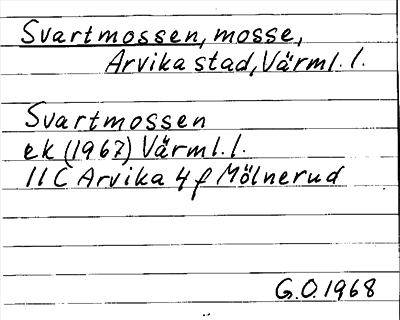 Svartmossen, mosse,
Arvika stad, Värml. l.
Svartmossen
ek (1967) Värml. l.
11 C Arvika 4 f Mölnerud
G.O. 1968